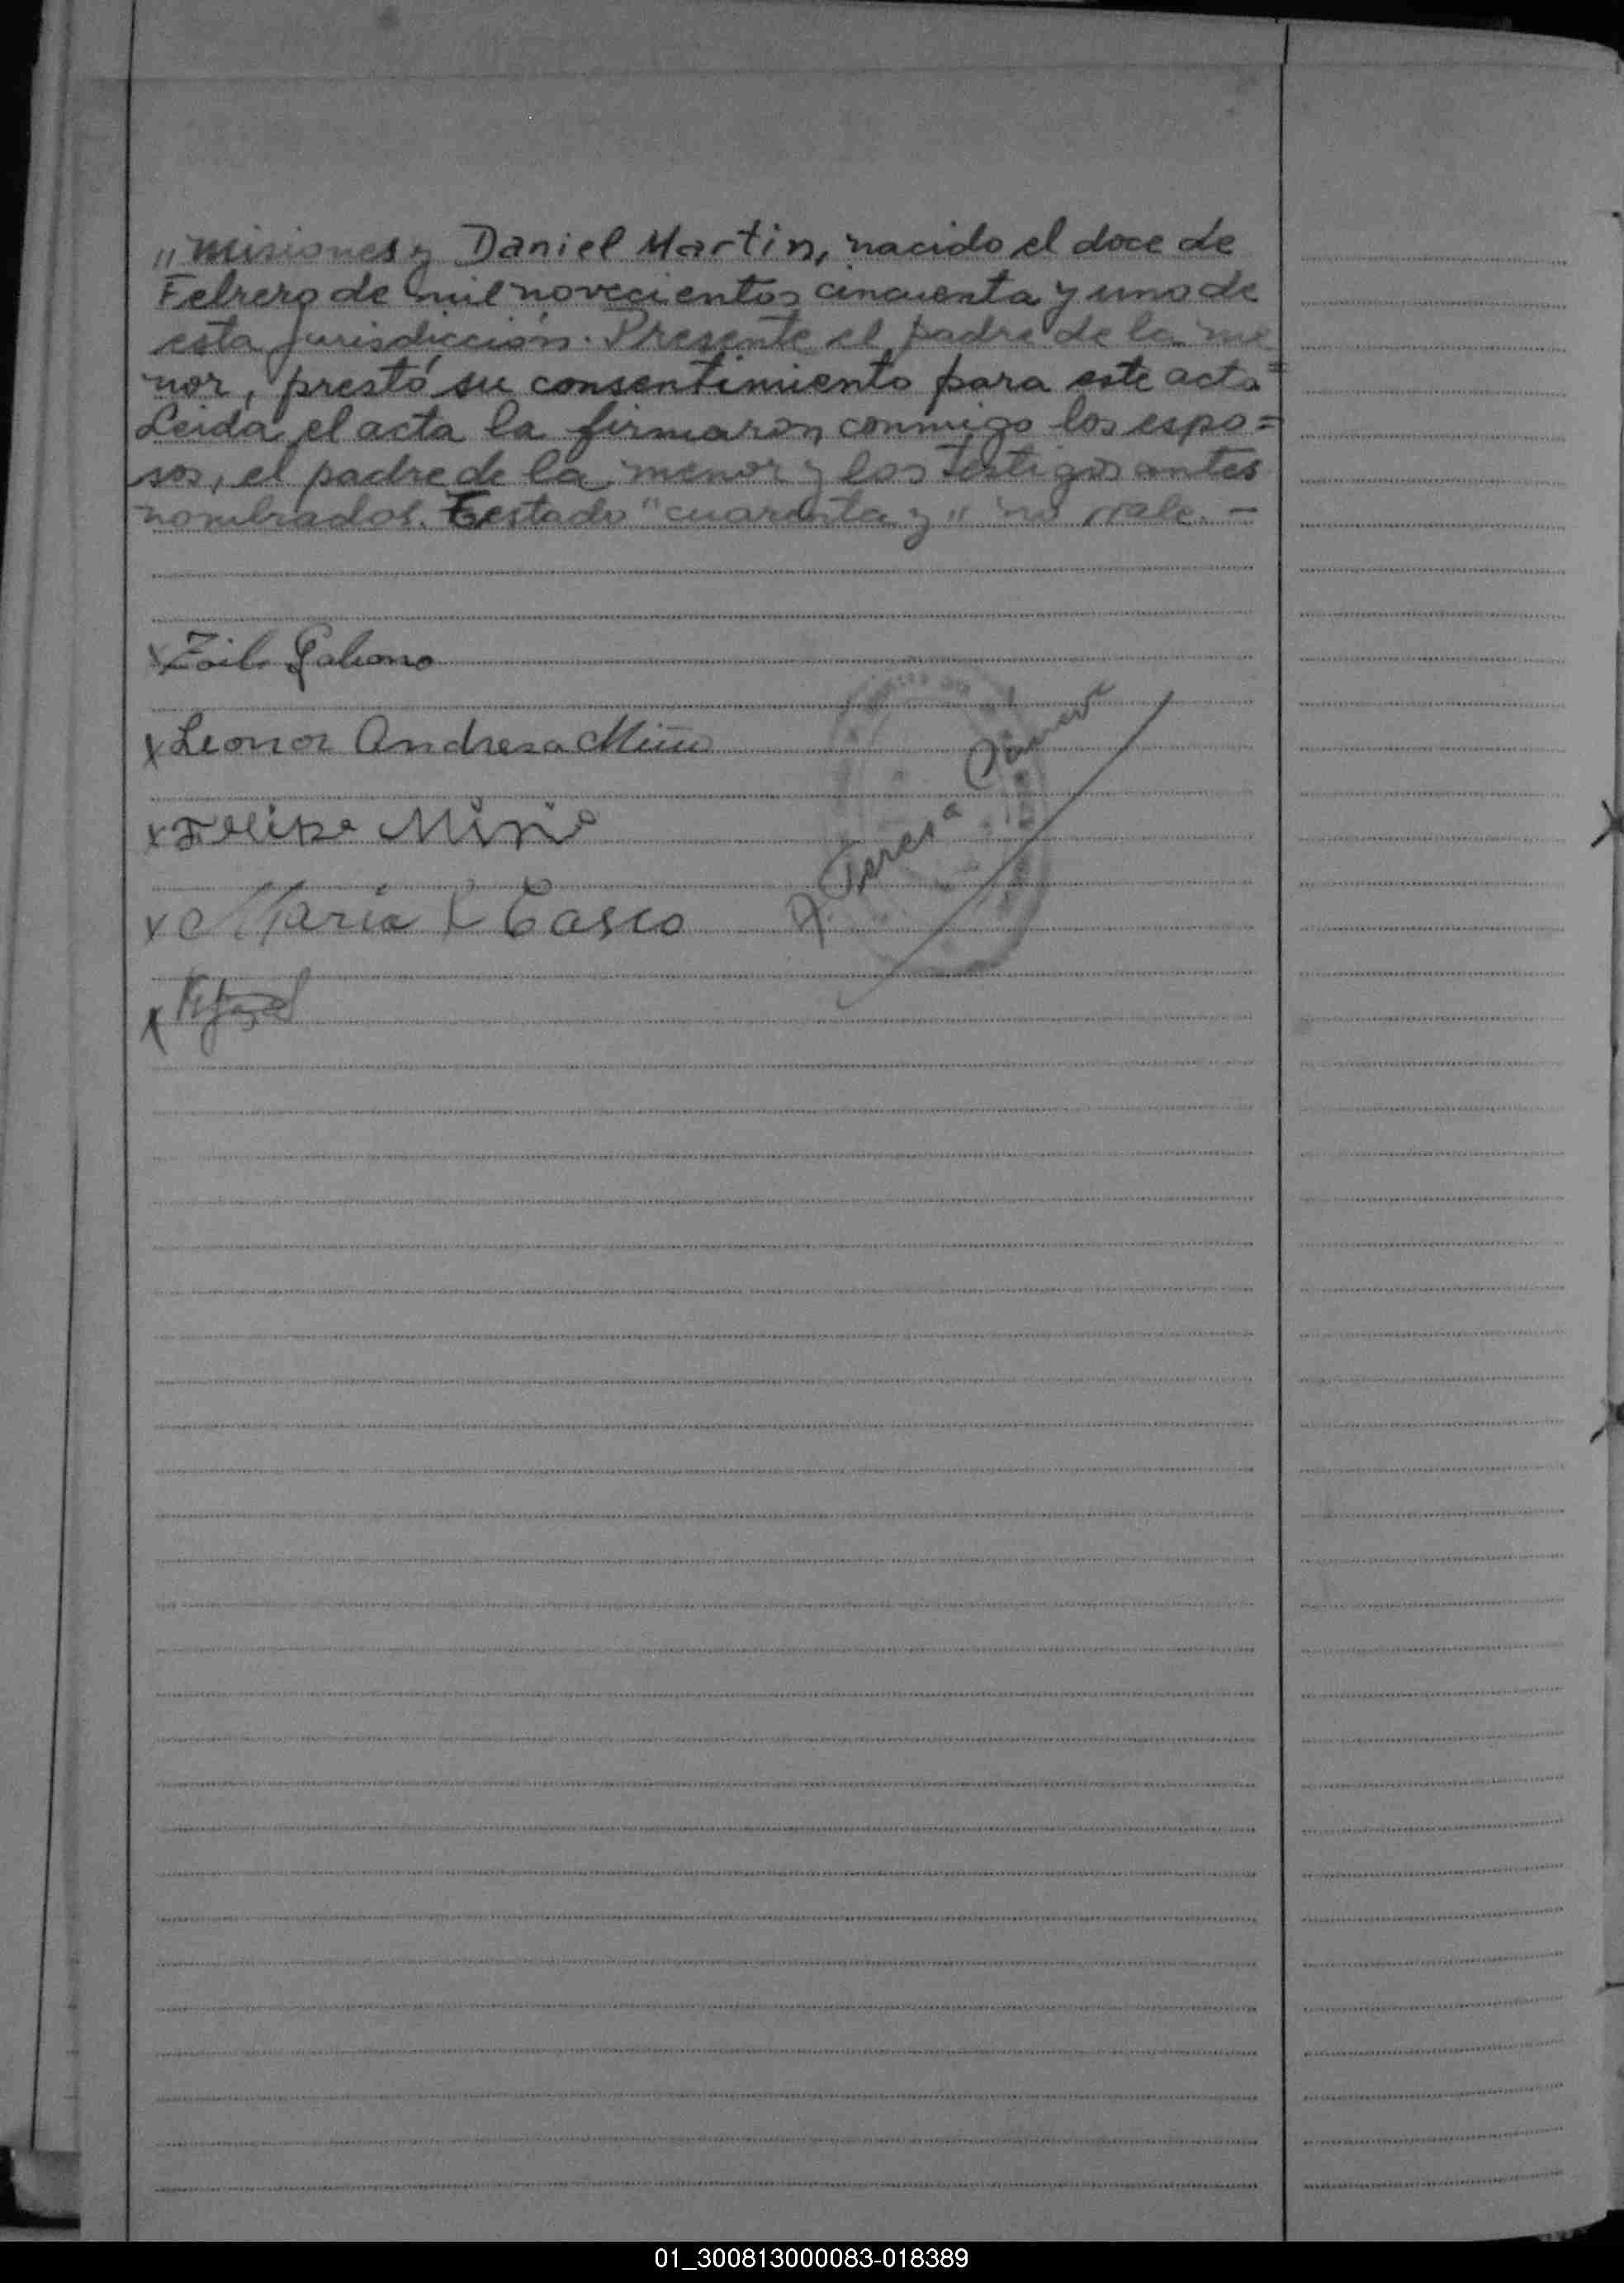 "Misiones y Daniel Martin, nacido el doce de
Febrero de mil novecientos cincuenta y uno de
esta jurisdicción. Presente el padre de la me
nor, prestó su consentimiento para este acto=
Leida el acta la firmaron conmigo los espo=
sos, el padre de la menor y los testigos antes
nombrados. Testado "cuarenta y" no vale. -
x Zoilo
x Leonor Andresa Miño
x Felipe Miño
x Maria Casco
x
Teresa
01_300813000083-018389